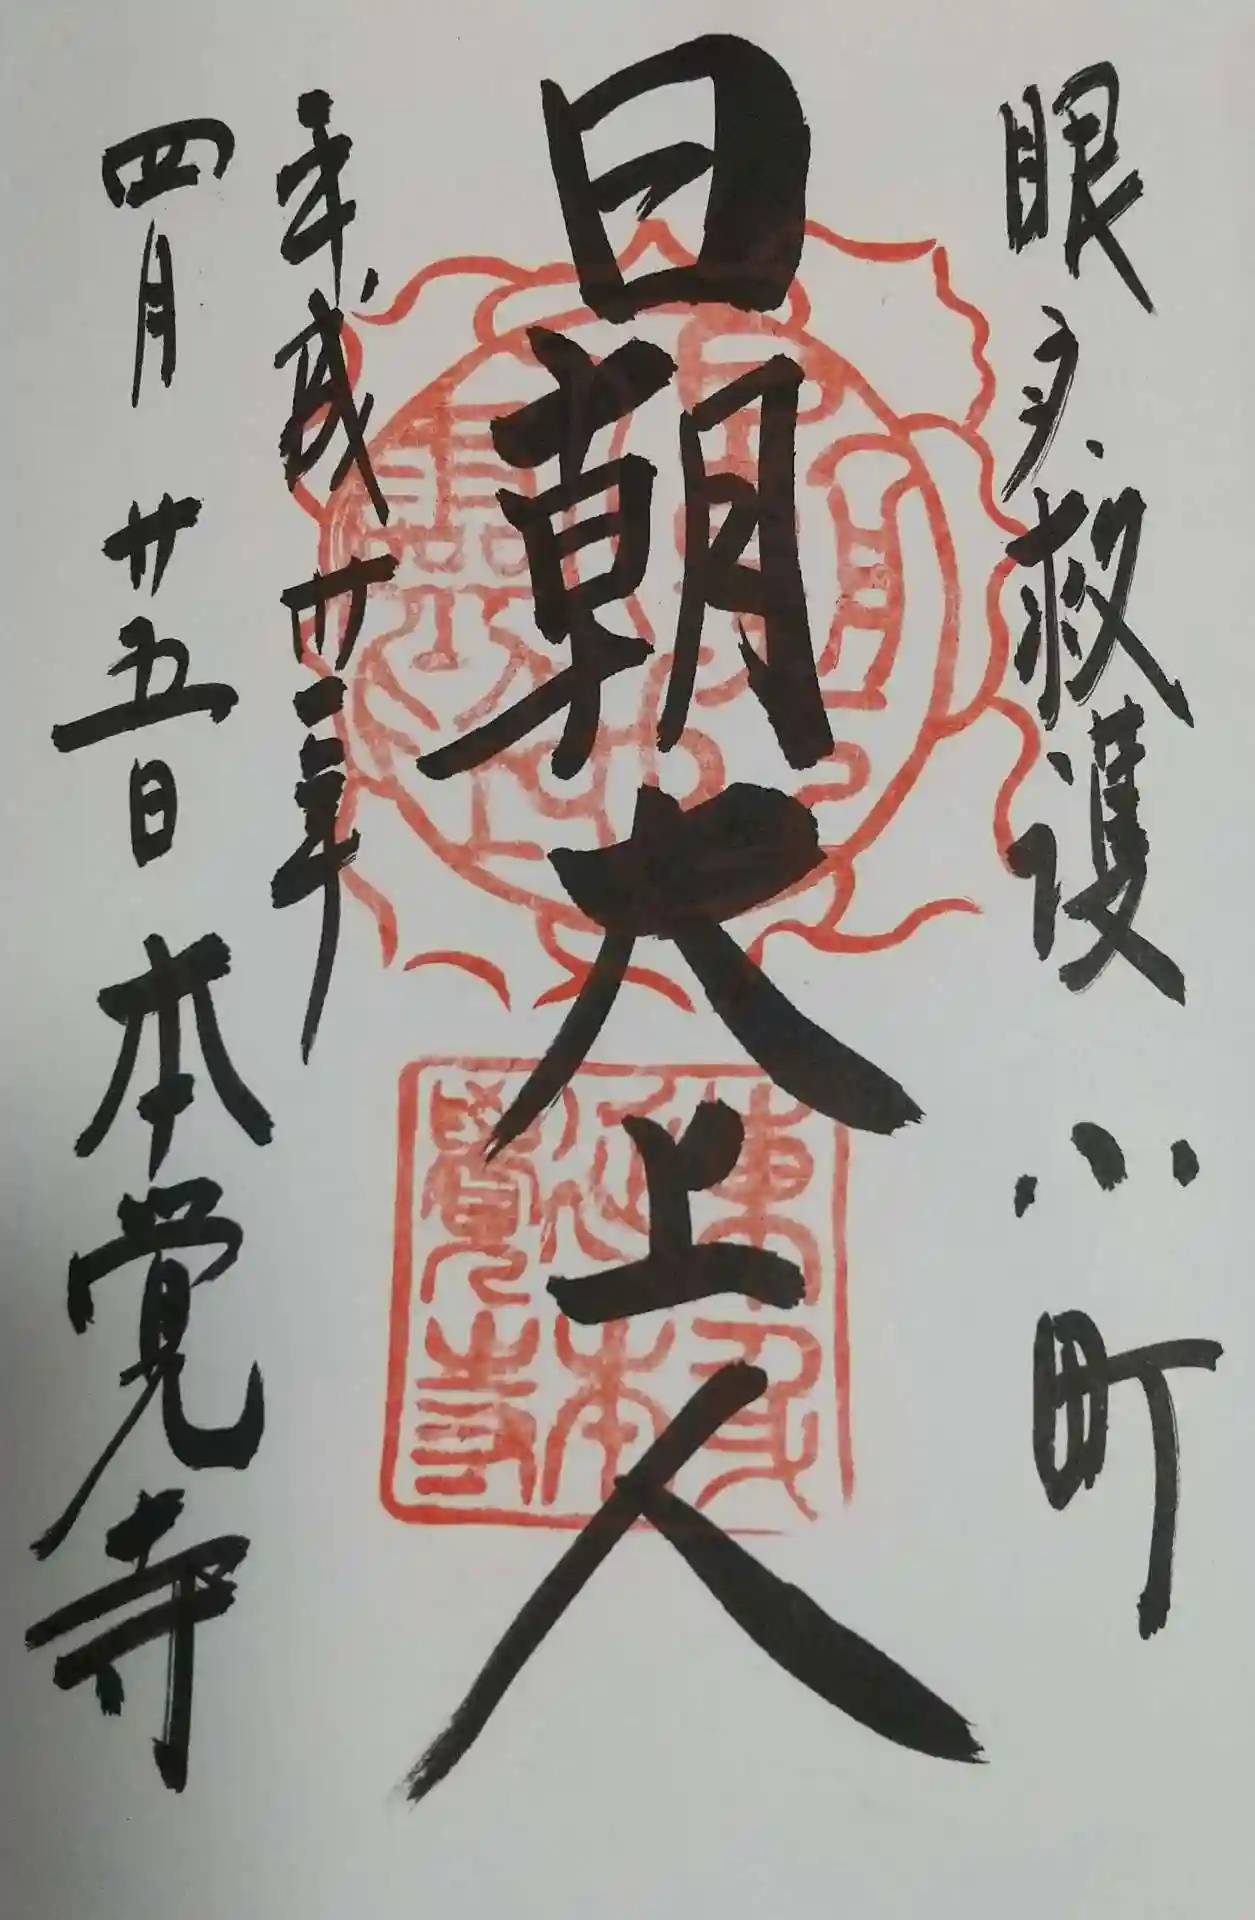 眼病救護 小町
日朝大上人
平成廿三年
四月廿五日 本覚寺
東身
延本
覺寺